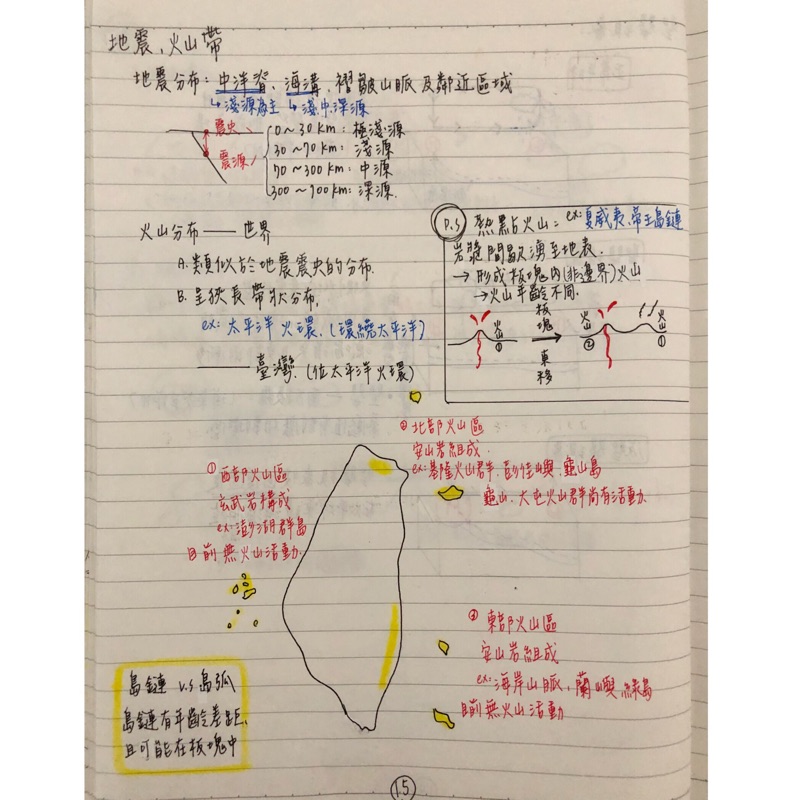 地震、火山帶
地震分布：中洋脊、海溝、褶皺山脈及鄰近區域
↳淺源為主 ↳淺、中、深源
震央
震源
0~30km：極淺源
30~70km：淺源
70~300km：中源
300~700km：深源.
火山分布——世界
A.類似於地震震央的分布.
B.呈狹長帶狀分布.
ex:太平洋火環.(環繞太平洋)
——臺灣.(位太平洋火環)
P.S 熱點火山：ex:夏威夷、帝王島鏈
岩漿間歇湧至地表.
→形成板塊內(非邊界)火山
→火山年齡不同.
火山① 板塊東移 火山② 火山①
①西部火山區
玄武岩構成
ex:澎湖群島
目前無火山活動.
②北部火山區
安山岩組成.
ex:基隆火山群、彭佳嶼、龜山島
龜山、大屯火山群尚有活動.
③東部火山區
安山岩組成
ex:海岸山脈,蘭嶼,綠島
目前無火山活動
島鏈 v.s 島弧
島鏈有年齡差距,
且可能在板塊中
15